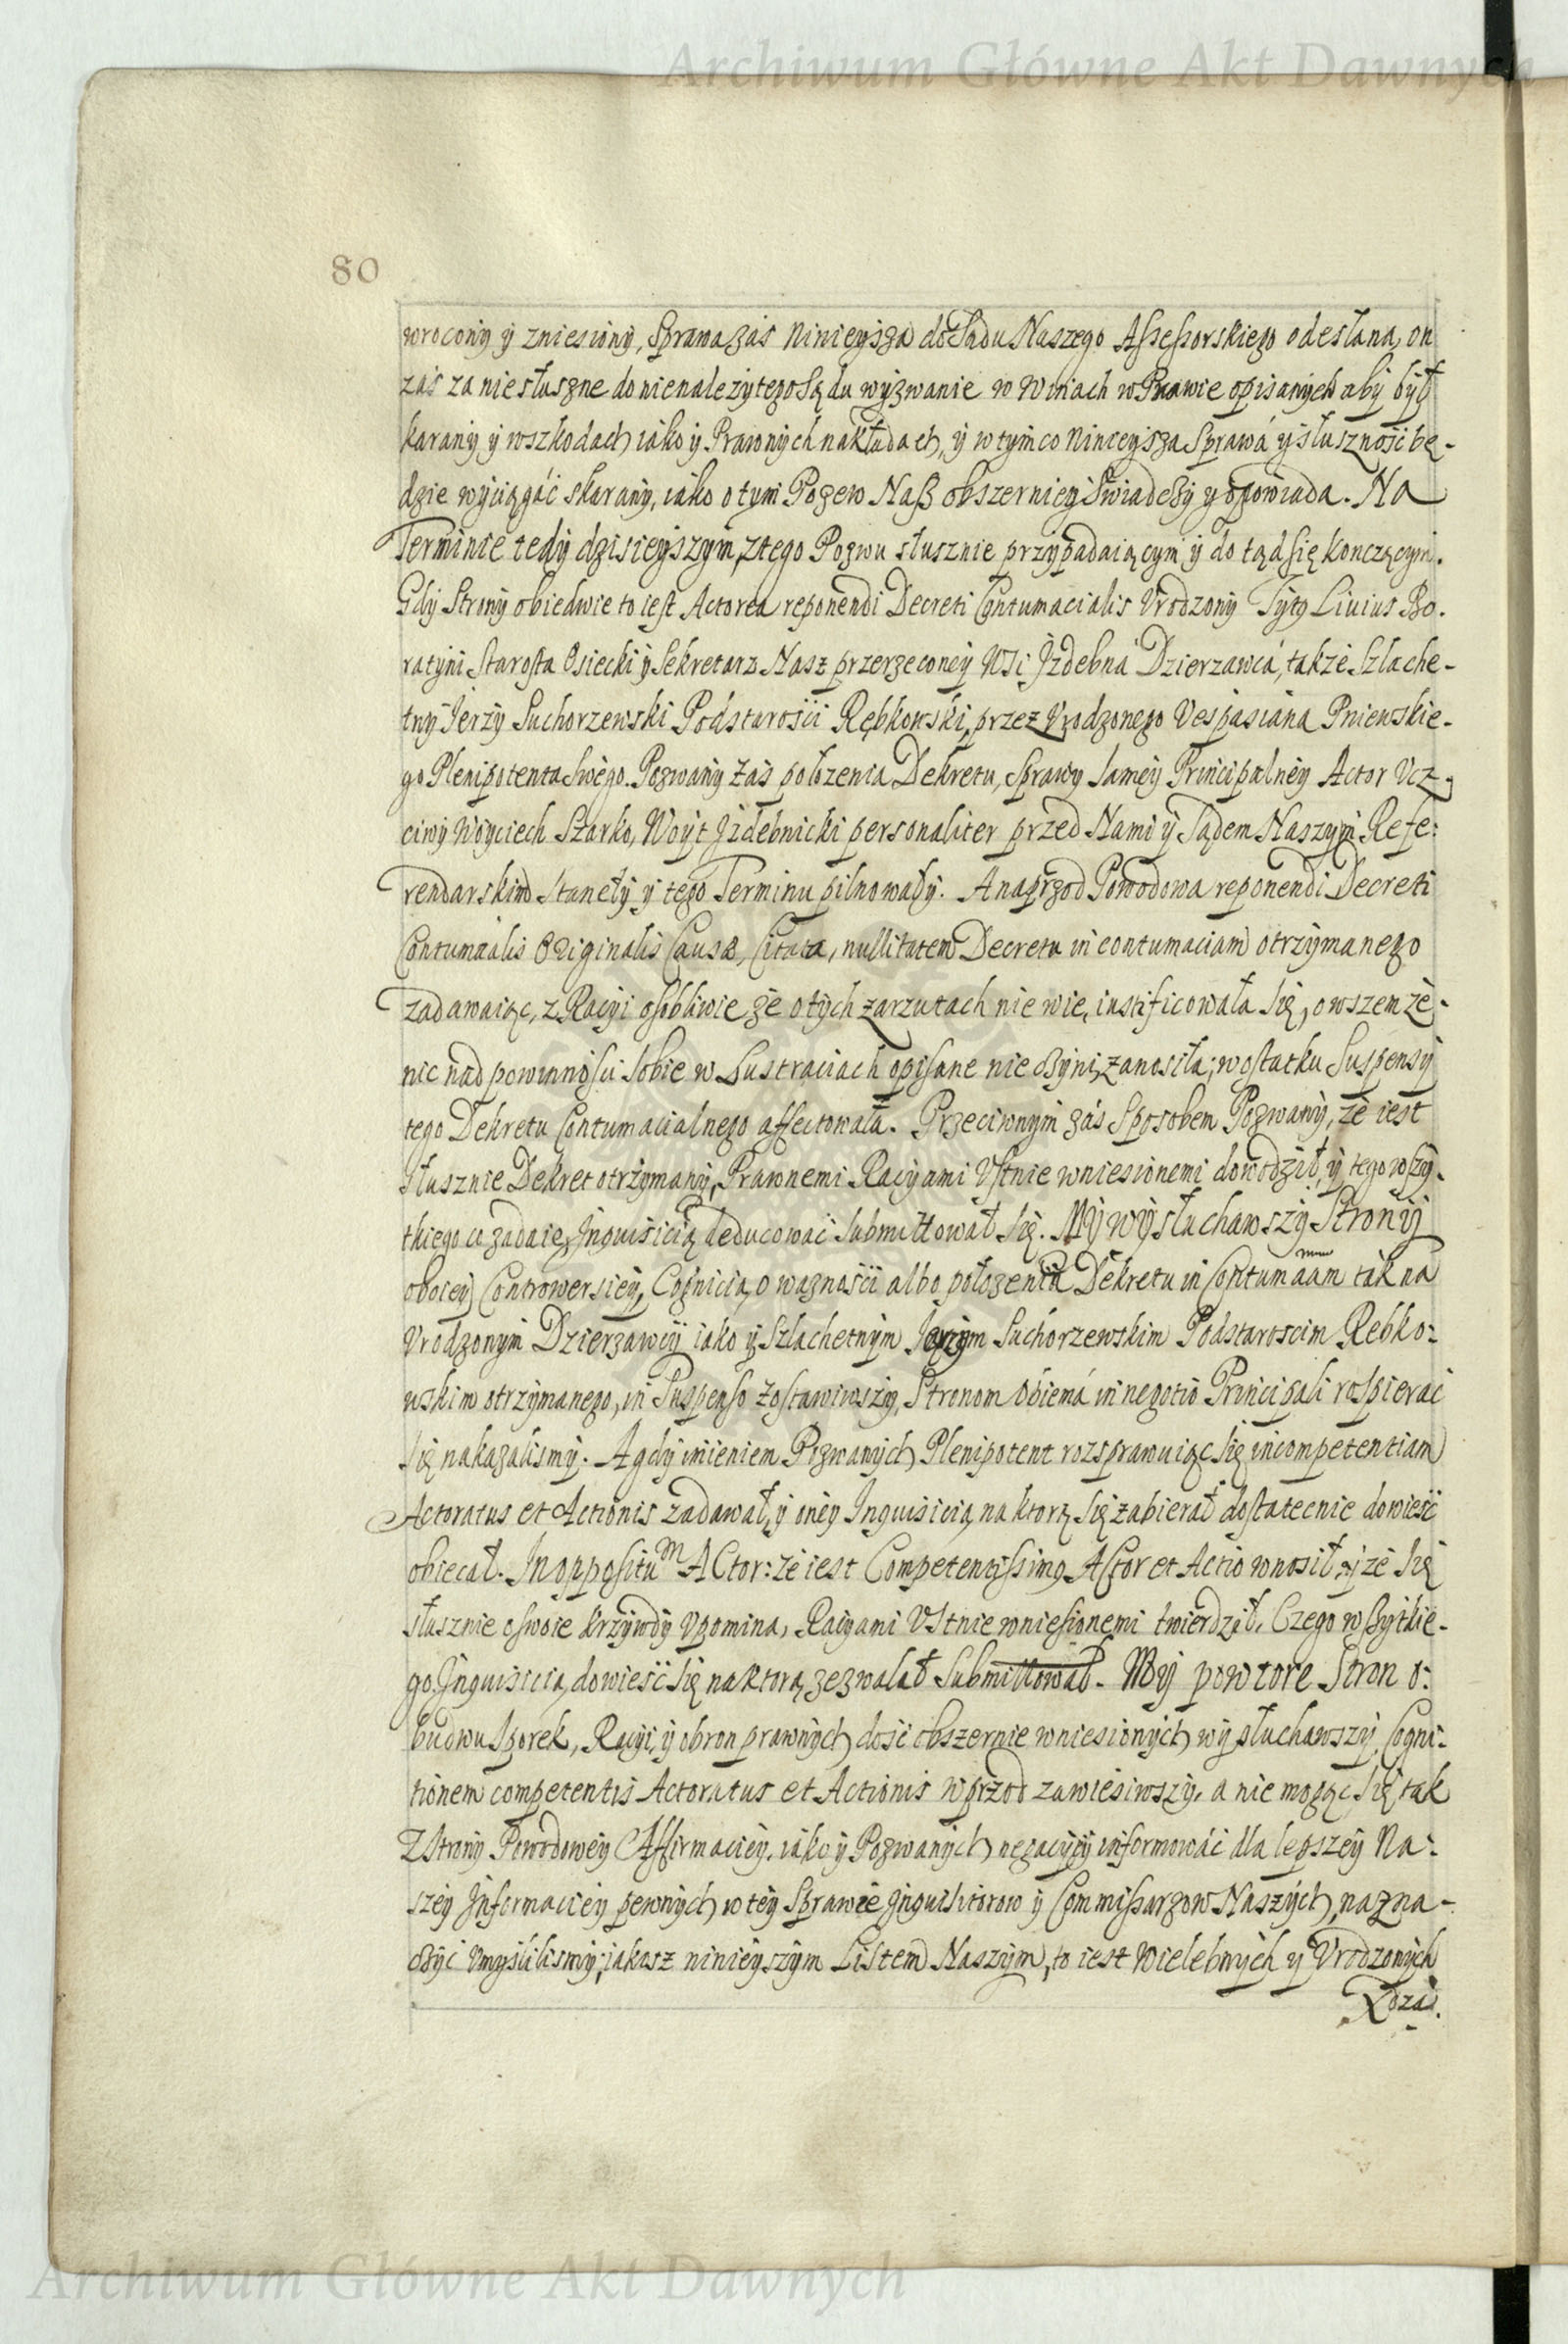 Archiwum Główne Akt Dawnych
80
wrocony y zniesiony, Sprawa zas Ninieysza do Sądu Naszego Assessorskiego odesłana, on
zas za niesłuszne do nienalezytego Sądu wyzwanie w Winach w Prawie opisanych aby był
karany y w szkodach iako y Prawnych nakładach, y w tym co Ninieysza Sprawá y słusznosc bę-
dzie wyciągáć skarany, iako o tym Pozew Nasz obszerniey Swiadczy y opowiada. Na
Terminie tedy dzisieyszym, z tego Pozwu słusznie przypadaiącym y do tąd się konczącym.
Gdy Strony obiedwie to iest Actorea reponendi Decreti Contumacialis Vrodzony Tyto Liuius Bo-
ratyni Starosta Osiecki y Sekretarz Nasz przerzeconey Wsi Jzdebna Dzierzawcá, także Szlache-
tny Jerzy Suchorzewski Podstarosci Rębkowski, przez Vrodzonego Vespasiana Pniewskie-
go Plenipotenta Swego. Pozwany zas położenia Dekretu, Sprawy Samey Principalney Actor Vcz-
ciwy Woyciech Szarko, Woyt Jzdebnicki personaliter przed Nami y Sądem Naszym Refe:
rendarskim Stanęły y tego Terminu pilnowały. A naprzod Powodowa reponendi Decreti
Contumãlis Originalis Causæ, Citata, nullitatem Decretu in contumaciam otrzymanego
zadawaiąc, z Racyi osobliwie że o tych zarzutach nie wie, iustificowała się, owszem że
nic nad powinnosci sobie w Lustraciach opisane nie czyni, zanosiła; w ostatku Suspensy
tego Dekretu Contumacialnego affectowała. Przeciwnym zás Sposobem Pozwany, że iest
słusznie Dekret otrzymany, Prawnemi Racyami Vstnie wniesionemi dowodził, y tego wszy-
tkiego co zadaie, Jnquisicią deducować submittował się. My wysłuchawszy Strony
oboiey Controwersiey, Cognicią o waznosci albo położeniu Dekretu in Contumaam tak na
Vrodzonym Dzierzawcy iako y Szlachetnym Jerzym Suchorzewskim Podstaroscim Rebko:
wskim otrzymanego, in Suspenso zostawiwszy, Stronom obiemá in negotio Principali rospierac
się nakazalismy. A gdy imieniem Pozwanych Plenipotent rozsprawuiąc się incompetentiam
Actoratus et Actionis zadawał, y oney Jnquisicią, na ktorą się zabierał dostatecnie dowiesć
obiecał. Jn oppositum Actor: że iest Competentissimo Actor et Actio wnosił, y że się
słusznie o swoie krzywdy Vpomina, Racyami Vstnie wniesionemi twierdził. Czego wszytkie-
go Jnquisicią dowiesć się na ktorą zezwalał submittował. My powtore Stron o:
budwu Sporek, Racyi, y obron prawnych dosć obszernie wniesionych wysłuchawszy, Cogni:
tionem competentis Actoratus et Actionis wprzod zawiesiwszy, a nie mogąc się tak
z Strony Powodowey Affirmaciey, iako y Pozwanych negacyiey informowáć dla lepszey Na:
szey Jnformaciey pewnych w tey Sprawie Jnquisitorow y Commissarzow Naszych, nazna-
czyć vmyslilismy; jakosz ninieyszym Listem Naszym, to iest Wielebnych y Vrodzonych
Archiwum Główne Akt Dawnych